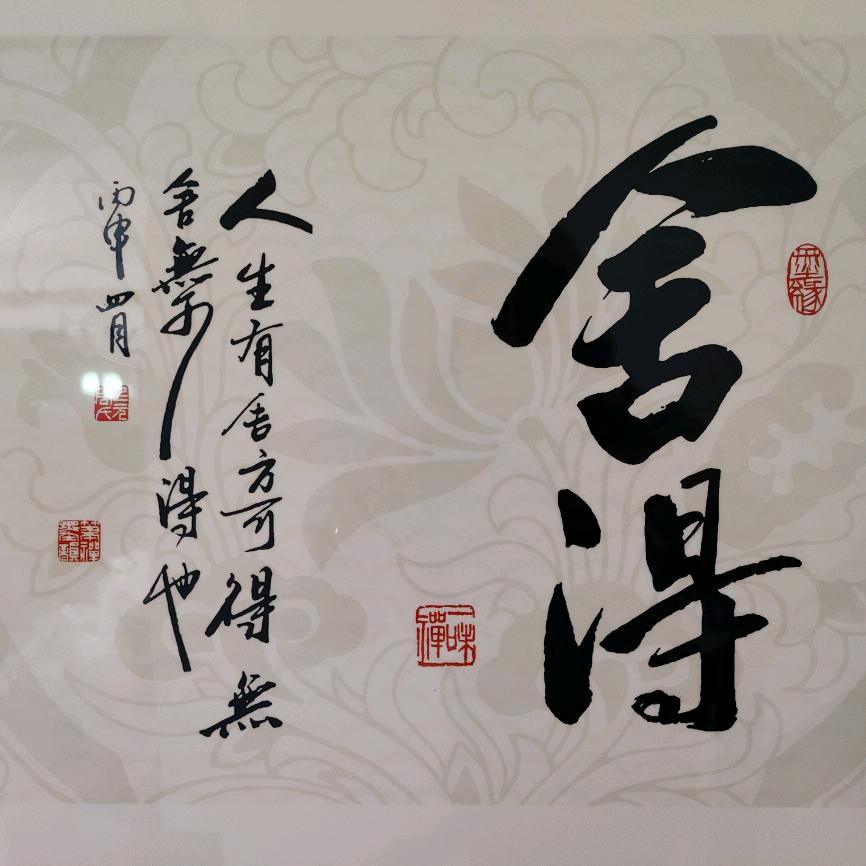 舍得
一味禪
人生有舍方可得無
舍無所得也
丙申四月
筆禪墨韻